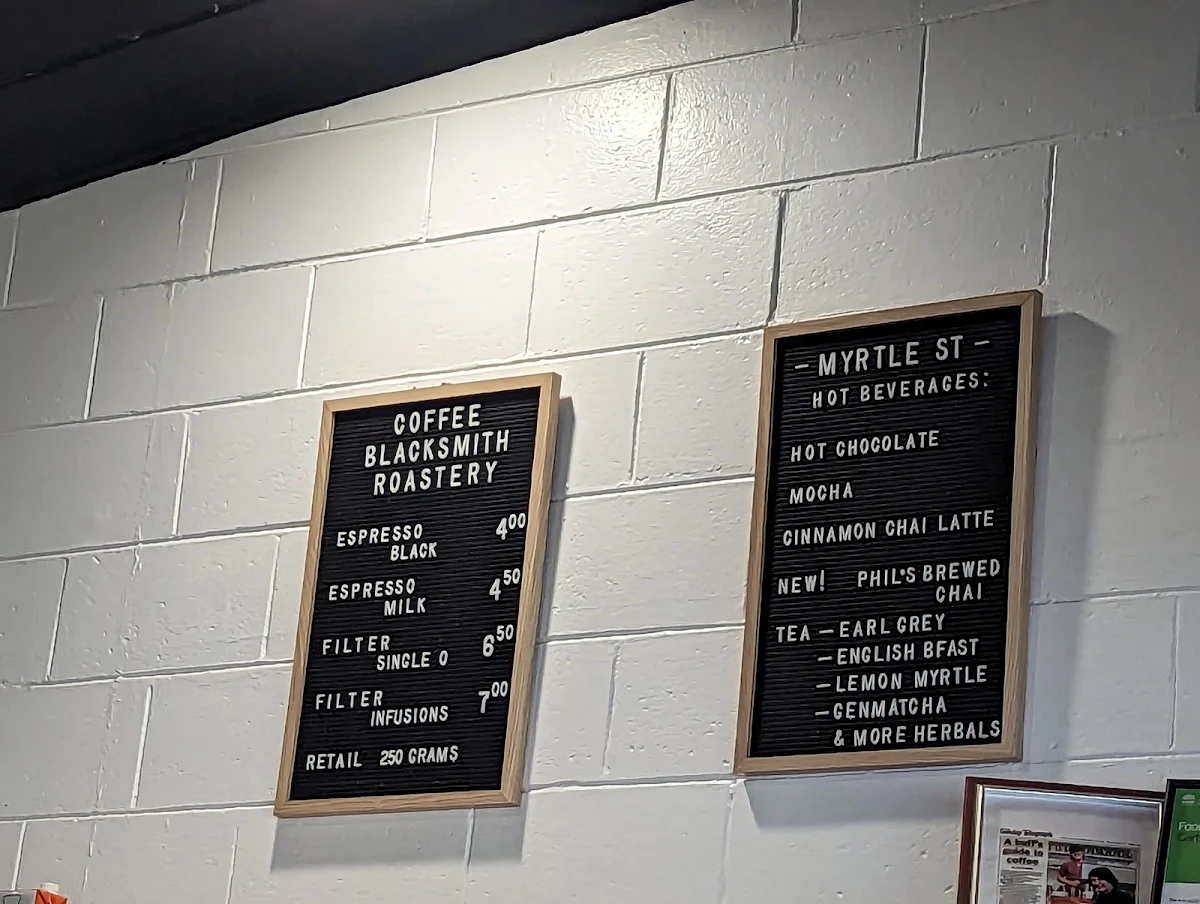 COFFEE
BLACKSMITH
ROASTERY
ESPRESSO 400
BLACK
ESPRESSO 450
MILK
FILTER 650
SINGLE O
FILTER 700
INFUSIONS
RETAIL 250 GRAMS
- MYRTLE ST -
HOT BEVERAGES:
HOT CHOCOLATE
MOCHA
CINNAMON CHAI LATTE
NEW! PHIL'S BREWED
CHAI
TEA - EARL GREY
- ENGLISH BFAST
- LEMON MYRTLE
- GENMATCHA
& MORE HERBALS
A buff's
guide to
coffee